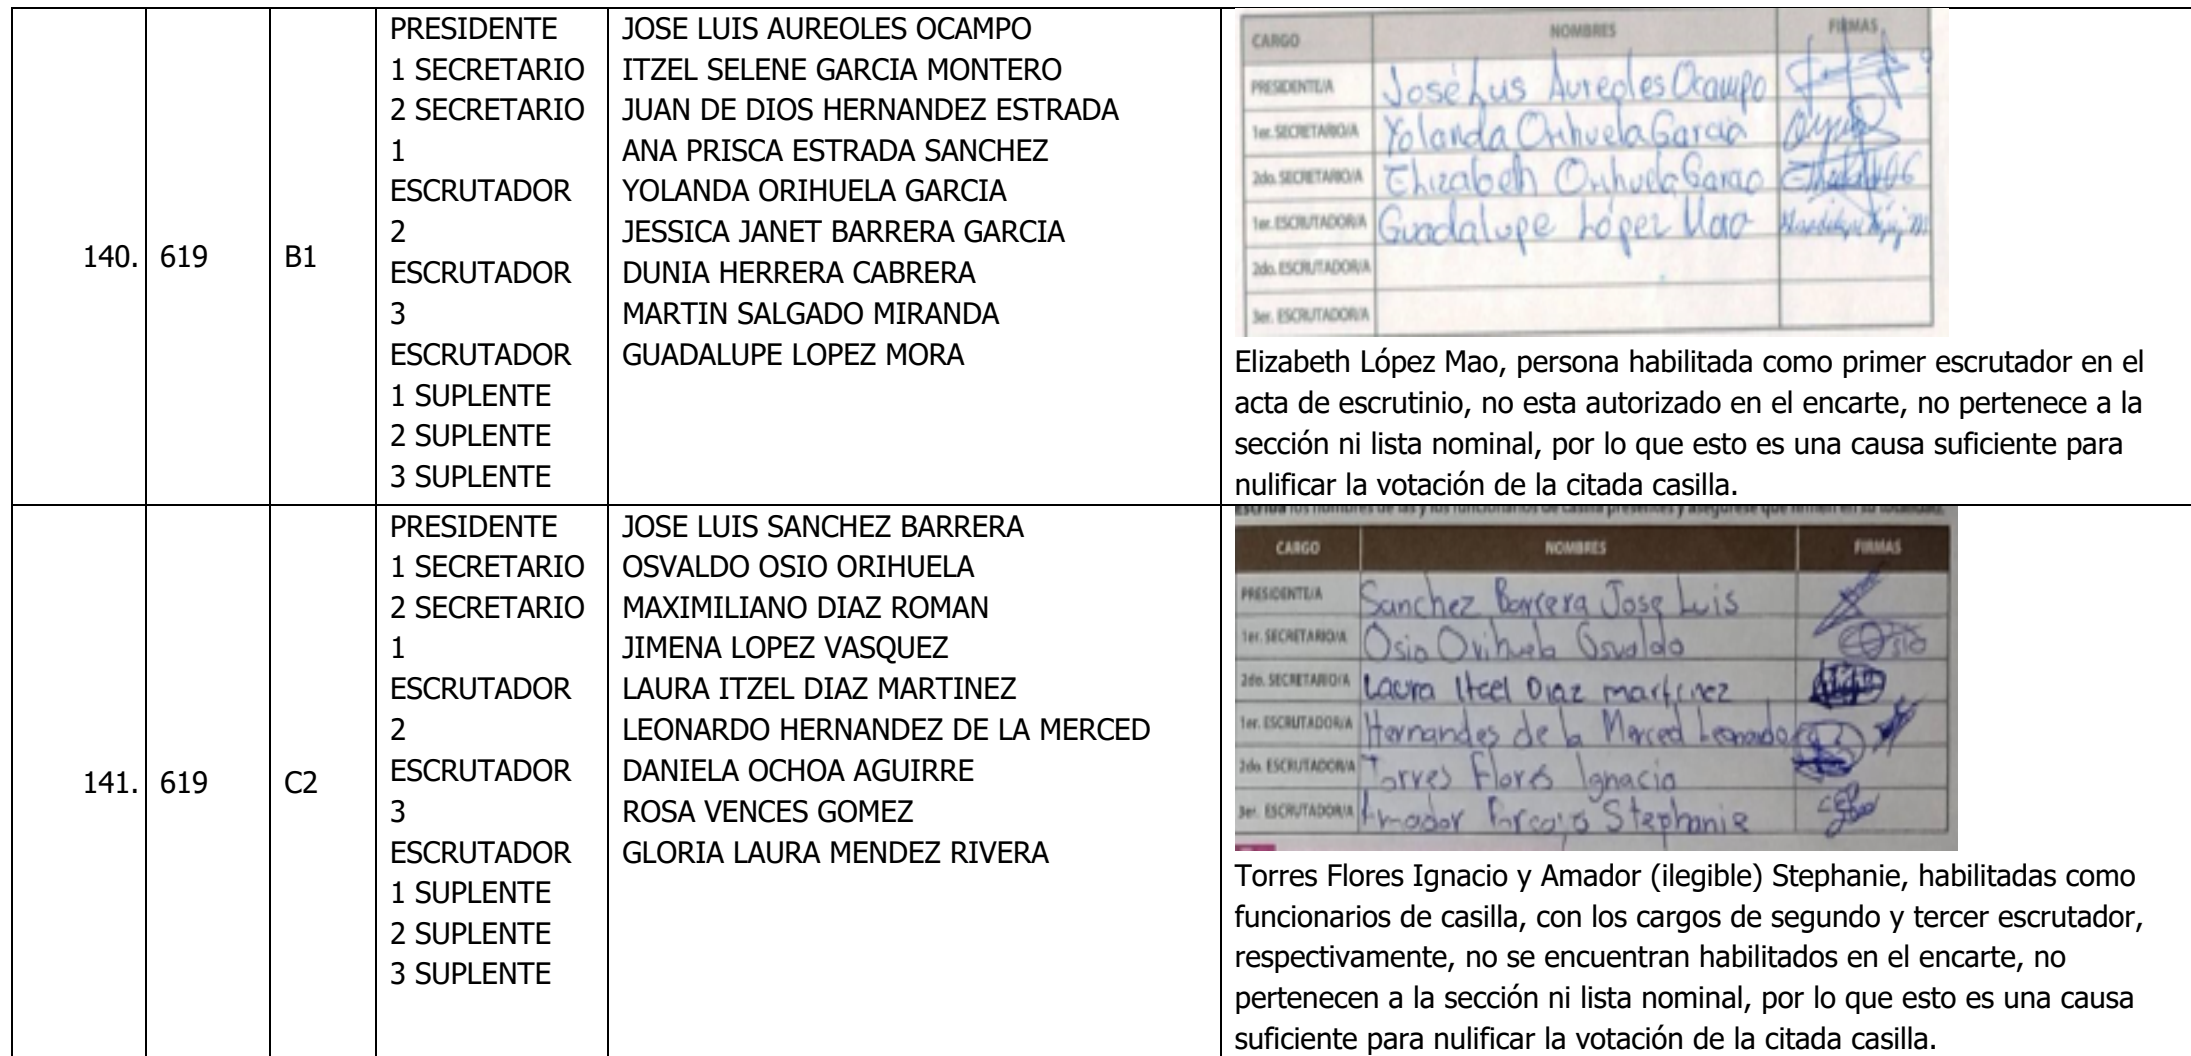 140. 619 B1
PRESIDENTE
1 SECRETARIO
2 SECRETARIO
1
ESCRUTADOR
2
ESCRUTADOR
3
ESCRUTADOR
1 SUPLENTE
2 SUPLENTE
3 SUPLENTE
JOSE LUIS AUREOLES OCAMPO
ITZEL SELENE GARCIA MONTERO
JUAN DE DIOS HERNANDEZ ESTRADA
ANA PRISCA ESTRADA SANCHEZ
YOLANDA ORIHUELA GARCIA
JESSICA JANET BARRERA GARCIA
DUNIA HERRERA CABRERA
MARTIN SALGADO MIRANDA
GUADALUPE LOPEZ MORA
CARGO NOMBRES FIRMAS
PRESIDENTE/A José Luis Aureoles Ocampo
1er. SECRETARIO/A Yolanda Orihuela Garcia
2do. SECRETARIO/A Elizabeth Orihuela Garcia
1er. ESCRUTADOR/A Guadalupe López
2do. ESCRUTADOR/A
3er. ESCRUTADOR/A
Elizabeth López Mao, persona habilitada como primer escrutador en el
acta de escrutinio, no esta autorizado en el encarte, no pertenece a la
sección ni lista nominal, por lo que esto es una causa suficiente para
nulificar la votación de la citada casilla.
141. 619 C2
PRESIDENTE
1 SECRETARIO
2 SECRETARIO
1
ESCRUTADOR
2
ESCRUTADOR
3
ESCRUTADOR
1 SUPLENTE
2 SUPLENTE
3 SUPLENTE
JOSE LUIS SANCHEZ BARRERA
OSVALDO OSIO ORIHUELA
MAXIMILIANO DIAZ ROMAN
JIMENA LOPEZ VASQUEZ
LAURA ITZEL DIAZ MARTINEZ
LEONARDO HERNANDEZ DE LA MERCED
DANIELA OCHOA AGUIRRE
ROSA VENCES GOMEZ
GLORIA LAURA MENDEZ RIVERA
Escriba los nombres de las y los funcionarios de casilla presentes y asegúrese que firmen en su totalidad.
CARGO NOMBRES FIRMAS
PRESIDENTE/A Sanchez Barrera Jose Luis
1er. SECRETARIO/A Osio Orihuela Osvaldo
2do. SECRETARIO/A Laura Itcel Diaz martinez
1er. ESCRUTADOR/A Hernandes de la Merced Leonardo
2do. ESCRUTADOR/A Torres Flores Ignacio
3er. ESCRUTADOR/A Amador Stephanie
Torres Flores Ignacio y Amador (ilegible) Stephanie, habilitadas como
funcionarios de casilla, con los cargos de segundo y tercer escrutador,
respectivamente, no se encuentran habilitados en el encarte, no
pertenecen a la sección ni lista nominal, por lo que esto es una causa
suficiente para nulificar la votación de la citada casilla.